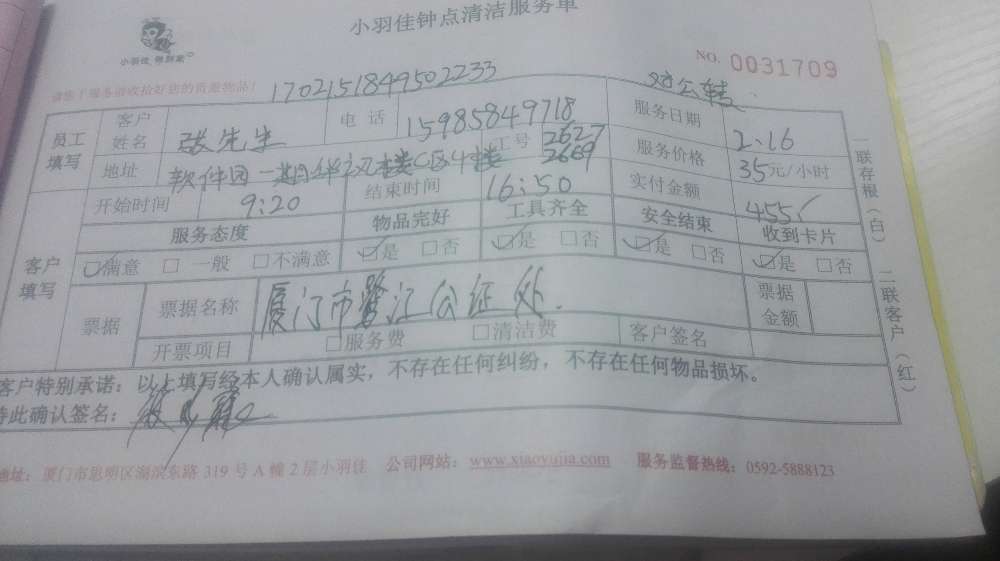 小羽佳钟点清洁服务单
小羽佳
NO. 0031709
1702151849502233
对公转
员工填写 客户姓名 张先生 电话 15985849718 服务日期 2.16
地址 软件园一期华讯楼C区4楼 工号 2627 2669 服务价格 35元/小时
开始时间 9:20 结束时间 16:50 实付金额 455
客户填写 服务态度 物品完好 工具齐全 安全结束 收到卡片
☑满意 □一般 □不满意 ☑是 □否 ☑是 □否 ☑是 □否 ☑是 □否
票据 票据名称 厦门市鹭江公证处. 票据金额
开票项目 □服务费 □清洁费 客户签名
客户特别承诺:以上填写经本人确认属实,不存在任何纠纷,不存在任何物品损坏。
特此确认签名:
地址:厦门市思明区湖滨东路 319 号 A 幢 2 层小羽佳 公司网站:www.xiaoyujia.com 服务监督热线:0592-5888123
一联存根(白) 二联客户(红)